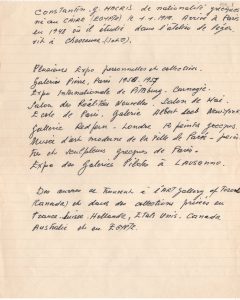 CONSTANTIN G. MACRIS de nationalité grecque
né au CAIRE (EGYPTE) le 1.1.1919. Arrivé à Paris
en 1948 où il étudie dans l'atelier de Leger
vit à
Plusieures Expo personnelles et collectives.
Galerie Pinel, Paris 1956 1957
Expo Internationale de Pittsburg - Carnegie.
Salon des Réalités Nouvelles, Salon de Mai,
Ecole de Paris. Galerie Albert Loeb New York
Gallerie Redfern - Londre. Peintre grecques,
Musée d'art moderne de la Ville de Paris -
tres et sculpteurs grecques de Paris -
Expo des Galeries Pilotes à LAUSANNE.
Des œuvres se trouvent à l'ART Gallery of
Kanada) et dans des collections privées en
France - Suisse, Hollande, Etats Unis, Canada
Australie et en EGYPTE.